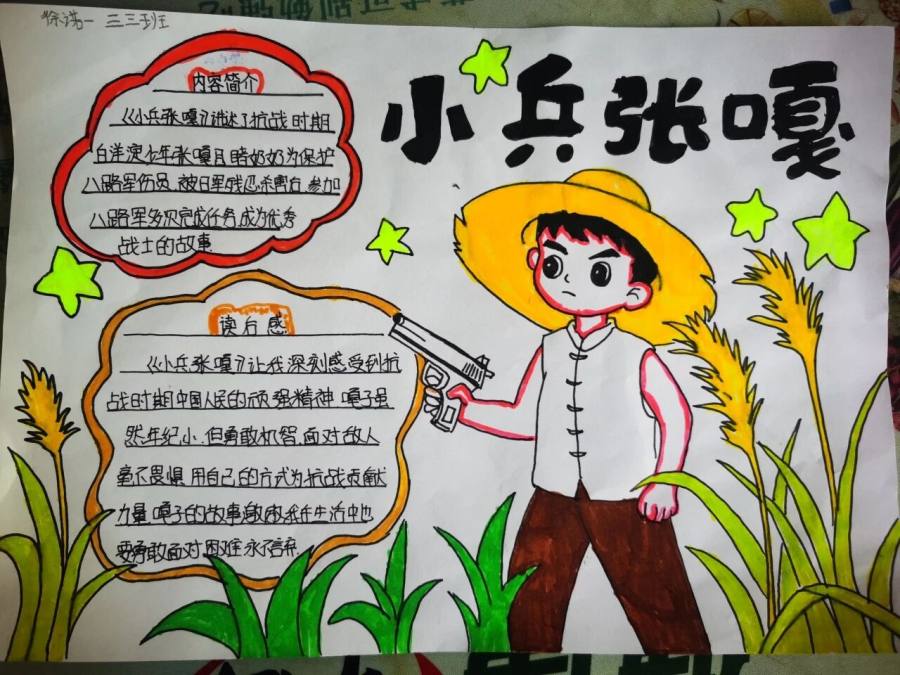 徐诺一 三三班
小兵张嘎
内容简介
《小兵张嘎》讲述了抗战时期
白洋淀少年张嘎目睹奶奶为保护
八路军伤员,被日军残忍杀害后,参加
八路军多次完成任务,成为优秀
战士的故事
读后感
《小兵张嘎》让我深刻感受到抗
战时期中国人民的顽强精神,嘎子虽
然年纪小,但勇敢机智,面对敌人
毫不畏惧,用自己的方式为抗战贡献
力量,嘎子的故事激励我在生活中也
要勇敢面对困难,永不言弃.